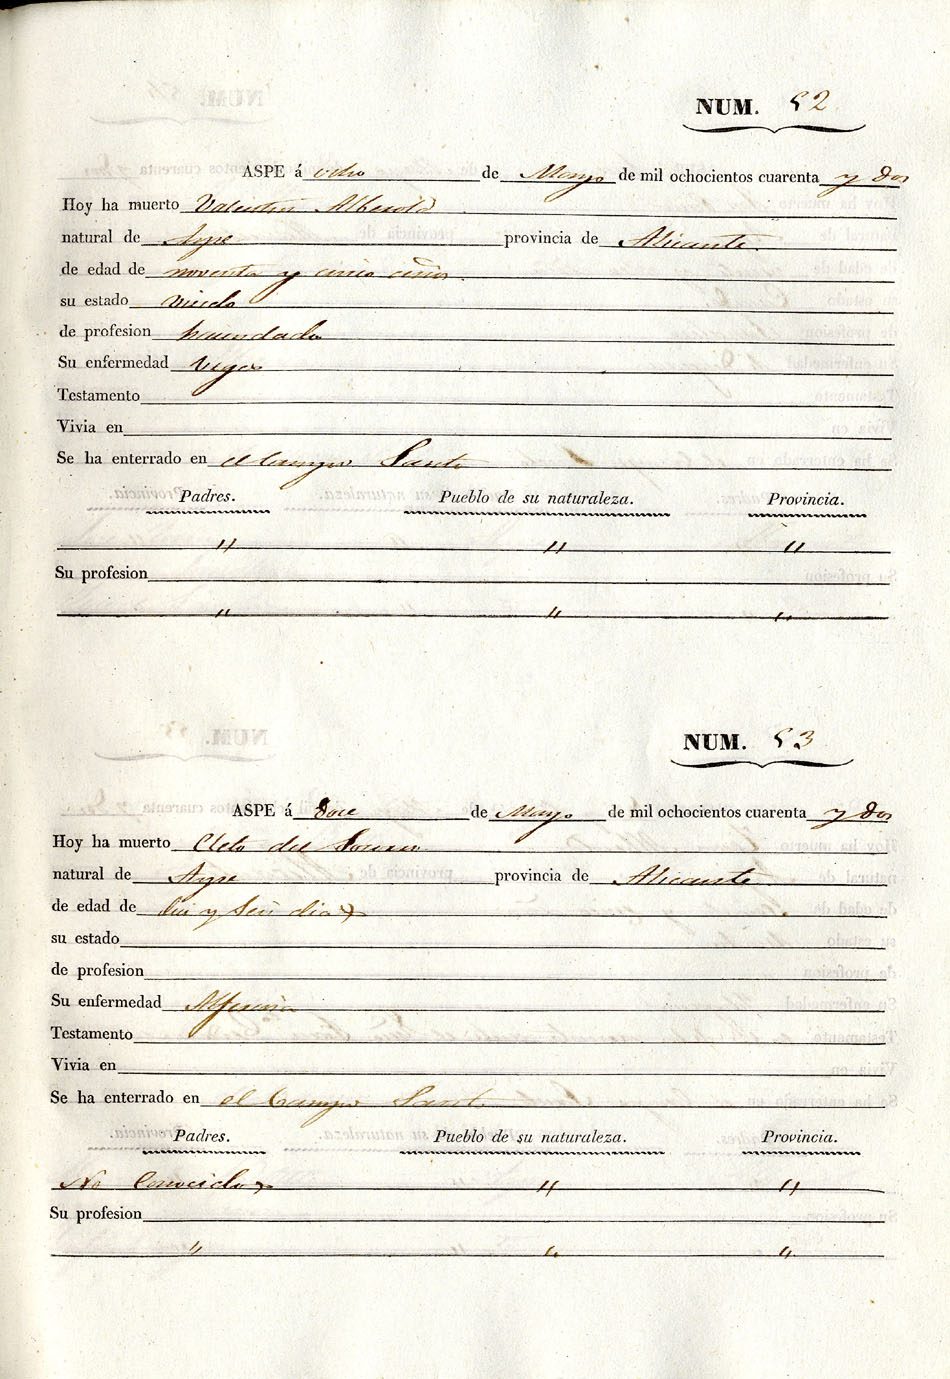 NUM. 52
ASPE á ocho de Mayo de mil ochocientos cuarenta y Dos
Hoy ha muerto Valentin Alberola
natural de Aspe provincia de Alicante
de edad de noventa y cinco años
su estado viudo
de profesion hacendado
Su enfermedad vegez
Testamento
Vivia en
Se ha enterrado en el Campo Santo
Padres. Pueblo de su naturaleza. Provincia.
" " "
Su profesion
" " "
NUM. 53
ASPE á Doce de Mayo de mil ochocientos cuarenta y Dos
Hoy ha muerto Cleto del
natural de Aspe provincia de Alicante
de edad de diez y seis dias
su estado
de profesion
Su enfermedad Alferecia
Testamento
Vivia en
Se ha enterrado en el Campo Santo
Padres. Pueblo de su naturaleza. Provincia.
No Conocidos " "
Su profesion
" " "